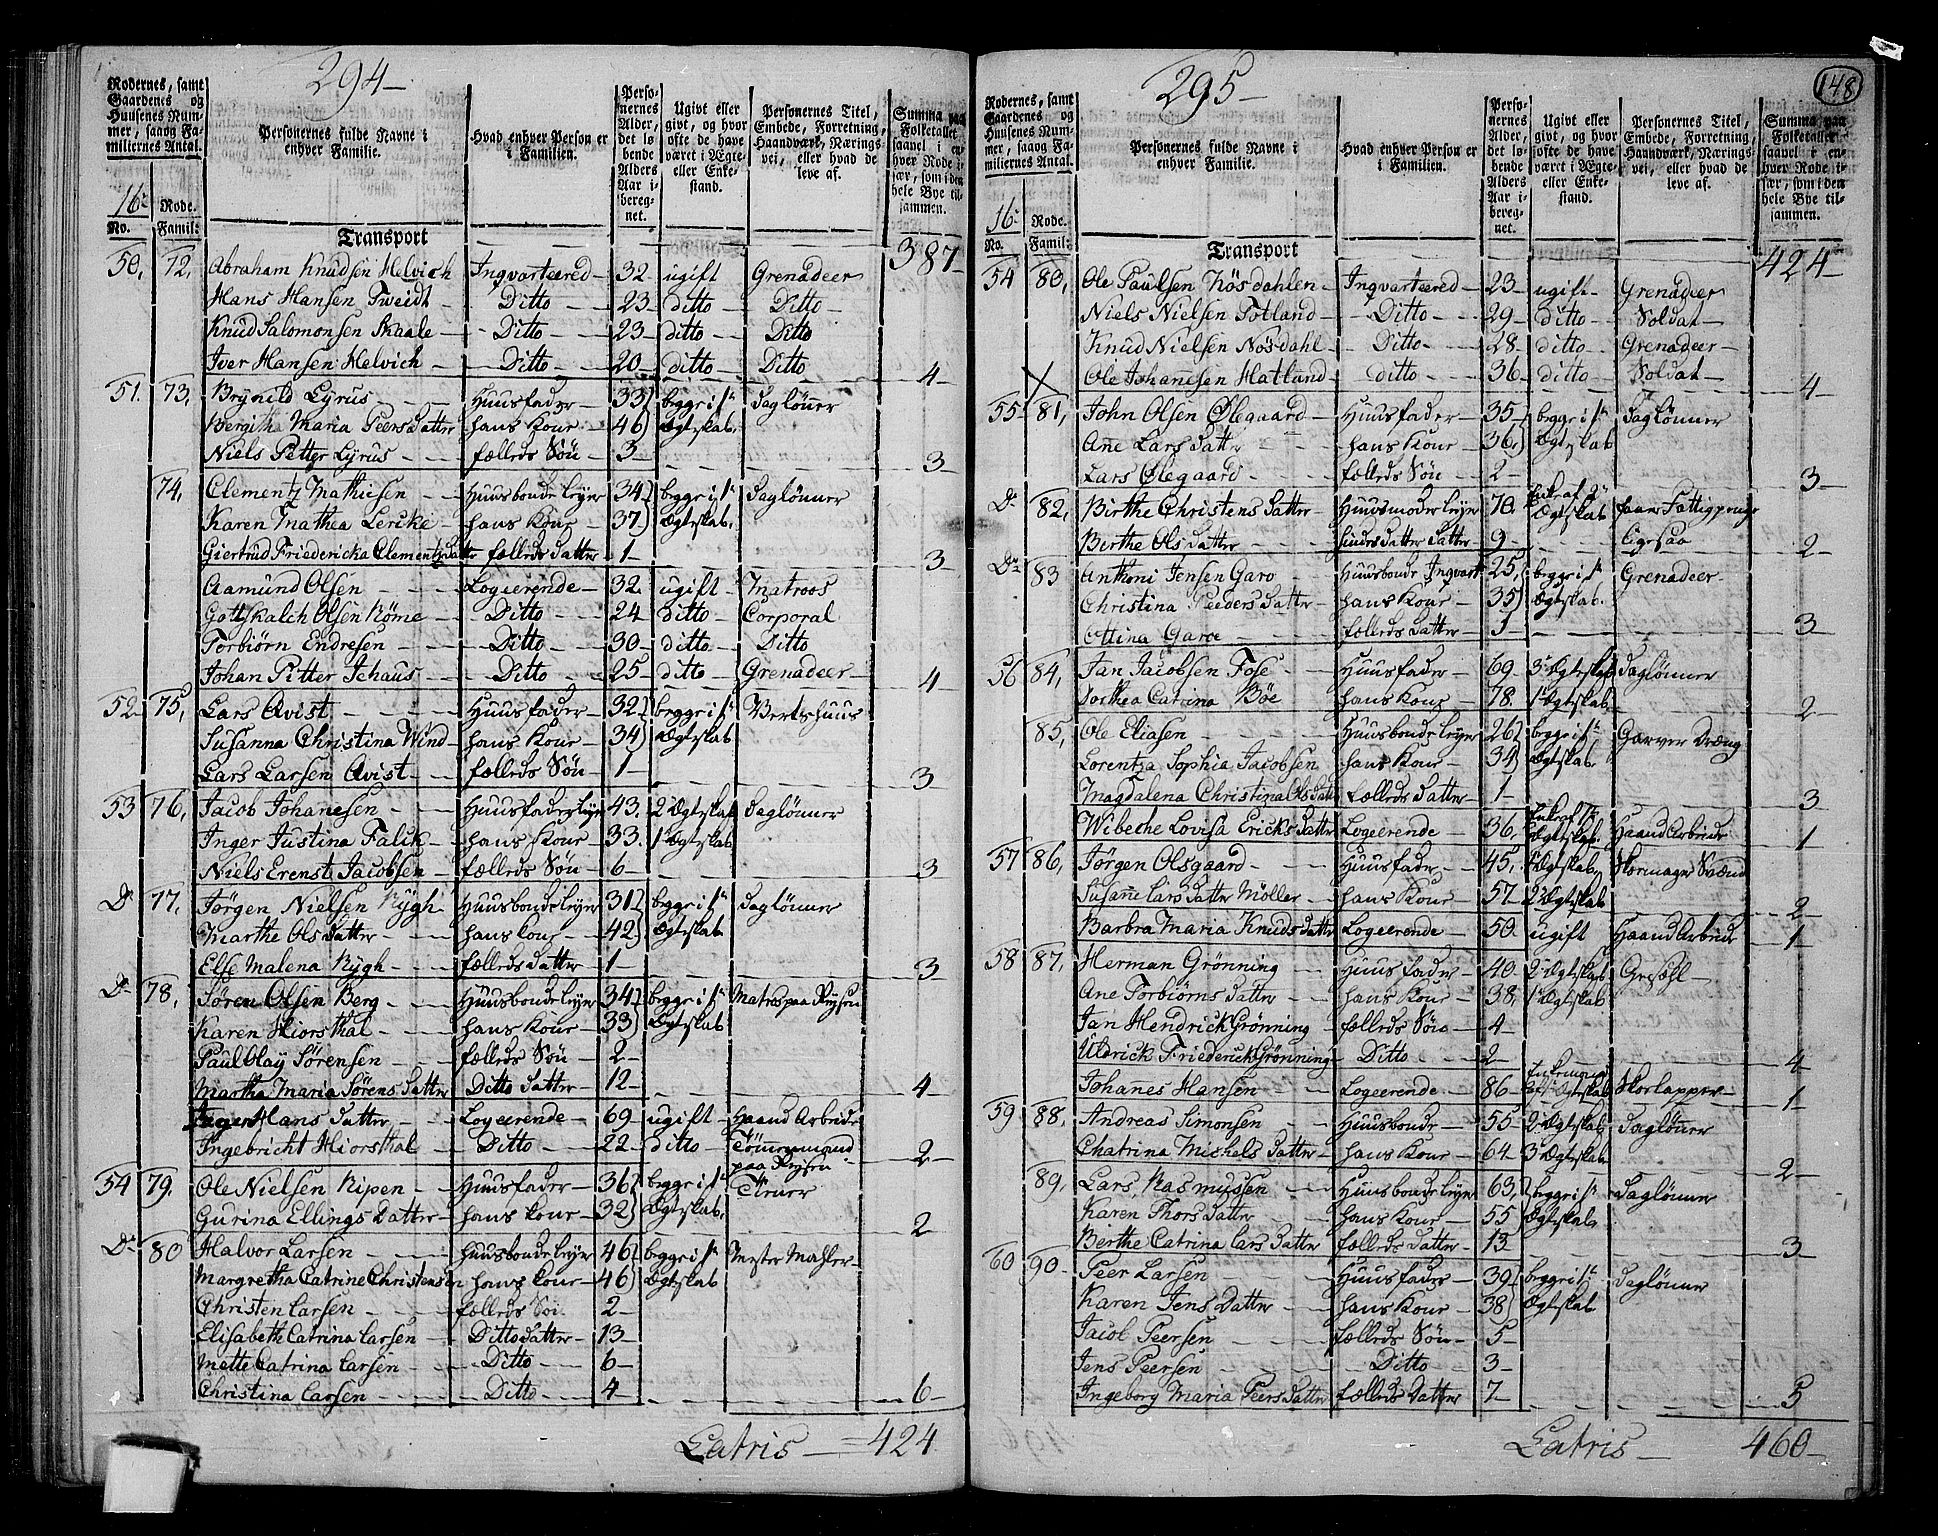 294
Rodernes, samt Gaardenes og Huusenes Nummer, saavog Familiernes Antal.
Personernes fulde Navne i enhver Familie.
Hvad enhver Person er i Familien.
Personernes Alder, det løbende Alders Aar iberegnet.
Ugivt eller givt, og hvor ofte de have været i Ægte- eller Enkestand.
Personernes Titel, Embede, Forretning, Haandværk, Næringsvei, eller hvad de leve af.
Summa paa Folketallet saavel i enhver Rode især, som i den hele Bye tilsammen.
16 Rode.
No. Famil:
Transport 387
50, 72, Abraham Knudsen Helvich Ingvarteered 32 ugift Grenadeer
Hans Hansen Tweidt Ditto 23 ditto Ditto
Knud Salomonsen Skaale Ditto 23 ditto Ditto
Iver Hansen Helvich Ditto 20 ditto Ditto 4
51. 73, Brynild Lyrus Huusfader 33 begge i 1te Daglønner
Bergithe Maria Peers Datter hans Kone 46 Ægteskab.
Niels Petter Lyrus fælleds Søn 3 3
74, Clementz Mathiesen Huusbonde leyer 34 begge i 1te Daglønner
Karen Mathea Lercke hans Kone 37 Ægteskab.
Giertrud Friedericka Clementz Datter fælleds Datter 1 3
Aamund Olsen Logeerende 32 ugift Matroos
Gotskalch Olsen Röme Ditto 24 ditto Corporal
Torbiörn Endresen Ditto 30 ditto Ditto
Johan Pitter Jehaus Ditto 25 ditto Grenadeer 4
52 75, Lars Qvist Huusfader 32 begge i 1te Vertshuus
Susanna Christina Wind hans Kone 34 Ægteskab
Lars Larsen Qvist fælleds Søn 1 3
53 76, Jacob Johanesen Huusfader leyer 43. 2 Ægteskab Daglønner
Inger Justina Falck hans Kone 33. 1 Ægteskab
Niels Ernst Jacobsen fælleds Søn 6 3
Do 77, Jørgen Nielsen Rygh Huusbonde leyer 31 begge i 1te Daglønner
Marthe Ols Datter hans Kone 42 Ægteskab
Else Malena Rygh fælleds Datter 1 3
Do 78, Søren Olsen Berg Huusbonde leyer 34 begge i 1te Matros paa Reysen
Karen Hiorsthal hans Kone 33 Ægteskab
Paul Olay Sørensen fælleds Søn 2
Martha Maria Sørens Datter Ditto Datter 12 4
Inger Hans Datter Logeerende 69 ugift Haand Arbeide
Ingebricht Hiorsthal Ditto 22 ditto Tömmermand paa Reysen 2
54 79. Ole Nielsen Ripen Huusfader 36 begge i 1te
Gurina Ellings Datter hans Kone 32 Ægteskab. 2
Do 80 Halvor Larsen Huusbonde leyer 46 begge i 1te Mester Mahler
Margretha Catrine Christensen hans Kone 46 Ægteskab
Christen Larsen fælleds Søn 2
Elisabeth Catrina Larsen Ditto Datter 13
Mette Catrina Larsen Ditto 6
Christina Larsen Ditto 4 6
Latris 424
295
148
Rodernes, samt Gaardenes og Huusenes Nummer, saavog Familiernes Antal.
Personernes fulde Navne i enhver Familie.
Hvad enhver Person er i Familien.
Personernes Alder, det løbende Alders Aar iberegnet.
Ugivt eller givt, og hvor ofte de have været i Ægte- eller Enkestand.
Personernes Titel, Embede, Forretning, Haandværk, Næringsvei, eller hvad de leve af.
Summa paa Folketallet saavel i enhver Rode især, som i den hele Bye tilsammen.
16 Rode.
No. Famil:
Transport 424
54 80, Ole Paulsen Nösdahlen Ingvarteered 23 ugift Grenadeer
Niels Nielsen Totland Ditto 29 ditto Soldat
Knud Nielsen Nösdahl Ditto 28 ditto Grenadeer
Ole Johannesen Hatland ditto 36 ditto Soldat 4
55 81, John Olsen Ølegaard Huusfader 35 begge i 1te Daglønner
Ane Lars Datter hans Kone 36 Ægteskab
Lars Ølegaard fælleds Søn 2 3
Do 82, Birthe Christens Datter Huusmoder leyer 70 Ægteskab faaer Fattigpenge
Berthe Ols Datter hendes Datter Datter 9 ligesaa 2
Do 83 Anthoni Jensen Garo Huusbonde Ingvart 25, begge i 1te Grenadeer
Christina Peeders Datter hans Kone 35 Ægteskab.
Ottina Garoe fælleds Datter 1 3
56 84, Jan Jacobsen Fose Huusfader 69 3 Ægteskab Daglønner
Dorthea Catrina Böe hans Kone 78 1 Ægteskab 2
85, Ole Eliasen Huusbonde leyer 26 begge i 1te Garver Dreng
Lorentza Sophia Jacobsen hans Kone 34 Ægteskab
Magdalena Christina Ols Datter fælleds Datter 1 3
Wibeche Lovisa Ericks Datter Logeerende 36, Enke af 1te Ægteskab Haand Arbeide 1
57 86, Jørgen Olsgaard Huusfader 45, Ægteskab Skomager Svend
Susanne Lars Datter Möller hans Kone 57 2 Ægteskab 2
Barbra Maria Knuds Datter Logeerende 50 ugift Haand Arbeide 1
58 87, Herman Grönning Huusfader 40 2 Ægteskab Gesæl
Ane Torbiörns Datter hans Kone 38, 1 Ægteskab
Jan Hendrick Grönning fælleds Søn 4
Uldrick Friederick Grönning Ditto 2 4
Johanes Hansen Logeerende 86 Enkemand Ægteskab Skoelapper 1
59 88, Andreas Simonsen Huusbonde 55 2 Ægteskab Daglønner
Chatrina Michels Datter hans Kone 64 3 Ægteskab 2
89, Lars Rasmussen Huusbonde leyer 63, begge i 1te Daglønner
Karen Thors Datter hans Kone 55 Ægteskab
Berthe Catrina Lars Datter fælleds Datter 13 3
60 90 Peer Larsen Huusfader 39 begge i 1te Daglønner
Karen Jens Datter hans Kone 38 Ægteskab
Jacob Peersen fælleds Søn 5
Jens Peersen Ditto 3
Ingeborg Maria Peers Datter fælleds Datter 7 5
Latris 460